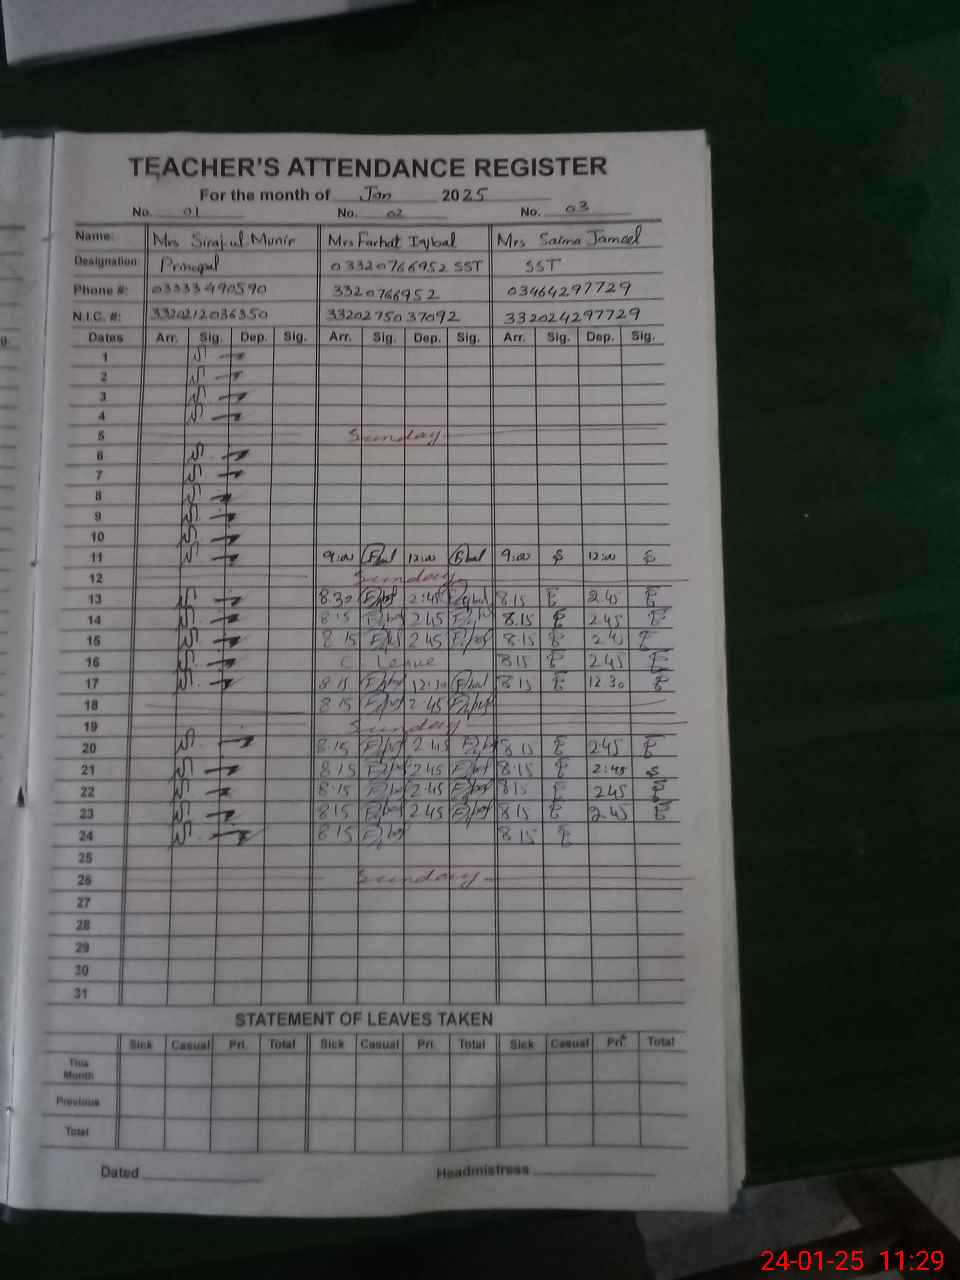 TEACHER'S ATTENDANCE REGISTER
For the month of Jan 2025
No. 01 No. 02 No. 03
Name: Mrs Siraj ul Munir Mrs Farhat Iqbal Mrs Saima Jameel
Designation: Principal 03320766952 SST SST
Phone #: 03333490590 3320766952 03464297729
N.I.C. #: 3320212036350 3320275037092 332024297729
Dates Arr. Sig. Dep. Sig. Arr. Sig. Dep. Sig. Arr. Sig. Dep. Sig.
1
2
3
4
5 Sunday
6
7
8
9
10
11 9:00 12:00 9:00 12:00
12 Sunday
13 8.30 2:45 8.15 2.45
14 8 15 2 45 8.15 2.45
15 8 15 2 45 8.15 2.45
16 C. Leave 8.15 2.45
17 8 15 12:30 8.15 12.30
18 8 15 2 45
19 Sunday
20 8.15 2 45 8.15 2.45
21 8.15 2.45 8.15 2:45
22 8.15 2.45 8.15 2.45
23 8.15 2.45 8.15 2.45
24 8 15 8.15
25
26 Sunday
27
28
29
30
31
STATEMENT OF LEAVES TAKEN
Sick Casual Pri. Total Sick Casual Pri. Total Sick Casual Pri. Total
This Month
Previous
Total
Dated Headmistress
24-01-25 11:29